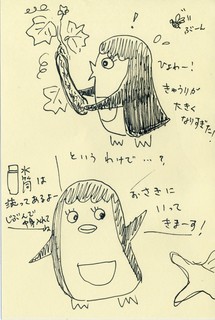 !
ぶーん
ひょわー!
きゅうりが
大きく
なりすぎた!!
というわけで…?
水筒は
洗ってあるよー
じぶんで
入れてね
おさきに
いって
きまーす!